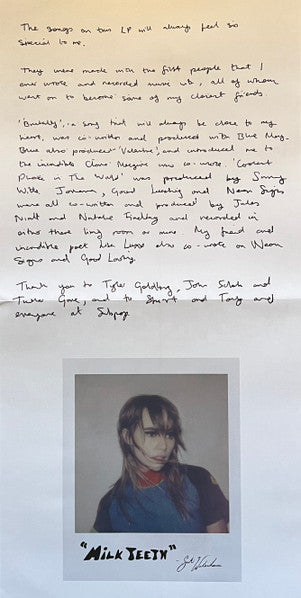 The songs on this LP will always feel so
special to me.
They were made with the first people that I
ever wrote and recorded music with, all of whom
went on to become some of my closest friends.
'Brutally', a song that will always be close to my
heart, was co-written and produced with Blue May.
Blue also produced 'Valentine', and introduced me to
the incredible Clare Maguire who co-wrote. 'Coolest
Place in The World' was produced by Sonny
With Johannes, Good Looking and Neon Signs
were all co-written and produced by Jules
and Natalie Findlay and recorded in
either there living room or mine. My friend and
incredible poet also co-wrote on Neon
Signs and Good Looking.
Thank you to Tyler Goldberg, John Silva and
Tucker Gore, and to and Tony and
everyone at Subpop
"MILK TEETH"